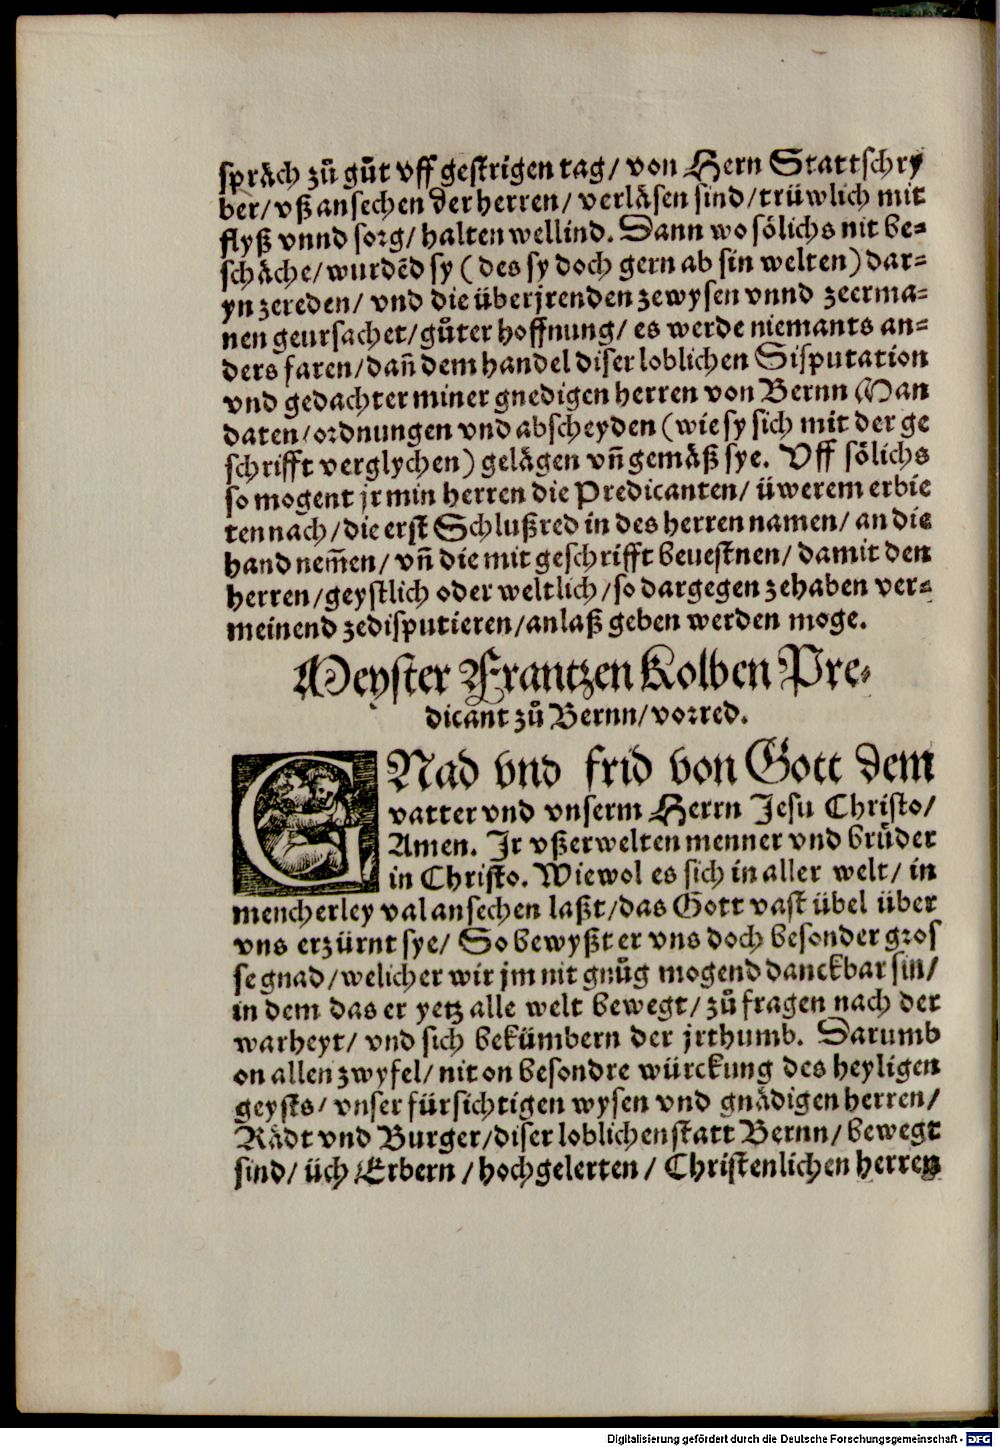 spräch zů gůt vff gestrigen tag/ von Hern Stattschry
ber/ vß ansechen der herren/ verläsen sind/ trüwlich mit
flyß vnnd sorg/ halten wellind. Dann wo sölichs nit be-
schäche/ wurdẽd sy ( des sy doch gern ab sin welten) dar-
yn zereden/ vnd die überjrenden zewysen vnnd zeerma-
nen geursachet/ gůter hoffnung/ es werde niemants an-
ders faren/ dañ dem handel diser loblichen Disputation
vnd gedachter miner gnedigen herren von Bernn Man
daten/ ordnungen vnd abscheyden (wie sy sich mit der ge
schrifft verglychen) gelägen vñ gemäß sye. Vff sölichs
so mogent jr min herren die Predicanten/ üwerem erbie
ten nach/ die erst Schlußred in des herren namen/ an die
hand nem̃en/ vñ die mit geschrifft beuestnen/ damit den
herren/ geystlich oder weltlich/ so dargegen zehaben ver-
meinend zedisputieren/ anlaß geben werden moge.
Meyster Frantzen Kolben Pre-
dicant zů Bernn/ vorred.
GNad vnd frid von Gott dem
vatter vnd vnserm Herrn Jesu Christo/
Amen. Ir vßerwelten menner vnd brůder
in Christo. Wiewol es sich in aller welt/ in
mencherley val ansechen laßt/ das Gott vast übel über
vns erzürnt sye/ So bewyßt er vns doch besonder gros
se gnad/ welicher wir jm nit gnůg mogend danckbar sin/
in dem das er yetz alle welt bewegt/ zů fragen nach der
warheyt/ vnd sich bekümbern der jrthumb. Darumb
on allen zwyfel/ nit on besondre würckung des heyligen
geysts/ vnser fürsichtigen wysen vnd gnädigen herren/
Rädt vnd Burger/ diser loblichen statt Bernn/ bewegt
sind/ üch Erbern / hochgelerten/ Christenlichen herren
Digitalisierung gefördert durch die Deutsche Forschungsgemeinschaft - DFG